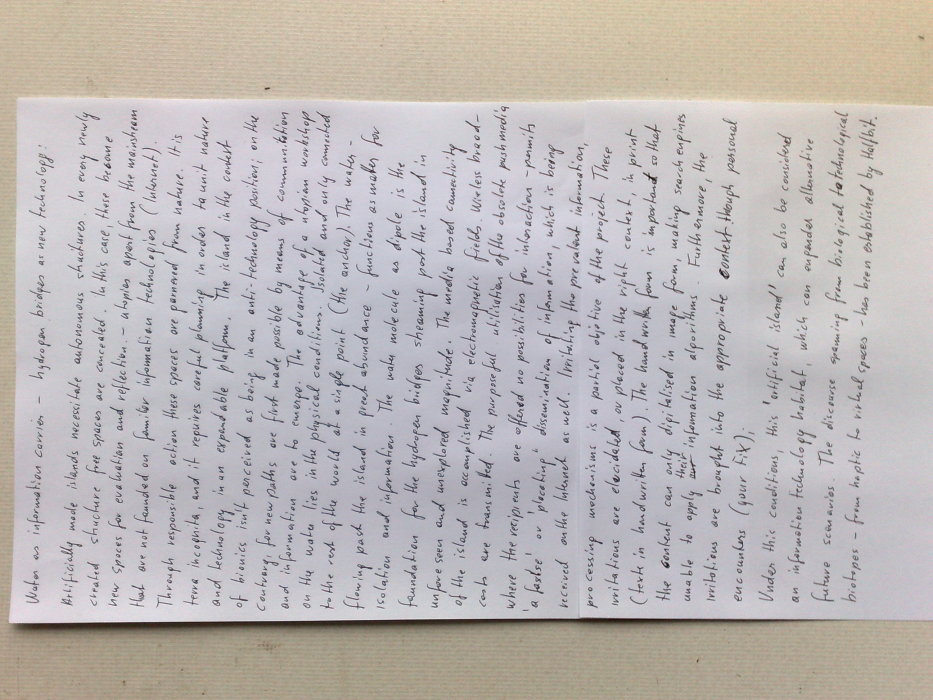 Water as information carrier – hydrogen bridges as new technology:
Artificially made islands necessitate autonomous structures. In every newly
created structure free spaces are concealed. In this case, these become
new spaces for evaluation and reflection – utopian apart from the mainstream
that are not founded on familiar information technologies (Internet).
Through responsible action these spaces are pioneered from nature. It is
terra incognita, and it requires careful planning in order to unit nature
and technology in an expandable platform. The island in the context
of bionics isn't perceived as being in an anti-technology position; on the
contrary, for new paths are first made possible by means of communication
and information are to emerge. The advantage of a utopian workshop
on the water lies in the physical conditions. Isolated and only connected
to the rest of the world at a single point (the anchor). The water –
flowing past the island in great abundance – functions as matter for
isolation and information. The water molecule as dipole is the
foundation for the hydrogen bridges streaming past the island in
unforeseen and unexplored magnitude. The media based connectivity
of the island is accomplished via electromagnetic fields. Wireless broad-
casts are transmitted. The purposeful utilisation of the obsolete push media
where the recipients are offered no possibilities for interaction – permits
'a forstse' or 'placating' dissemination of information, which is being
received on the Internet as well. Irritating the prevalent information
processing mechanisms is a partial objective of the project. These
irritations are elucidated, or placed in the right context, in print
(texts in hand written form). The hand written form is important so that
the content can only digitalised in image form, making search engines
unable to apply their information algorithms. Furthermore, the
irritations are brought into the appropriate context though personal
encounters (your fix);
Under this conditions, this "artificial island" can also be considered
an information technology habitat, which can engender alternative
future scenarios. The discourse spanning from biological to technological
biotopes – from haptic to virtual spaces – has been established by Halfbit.